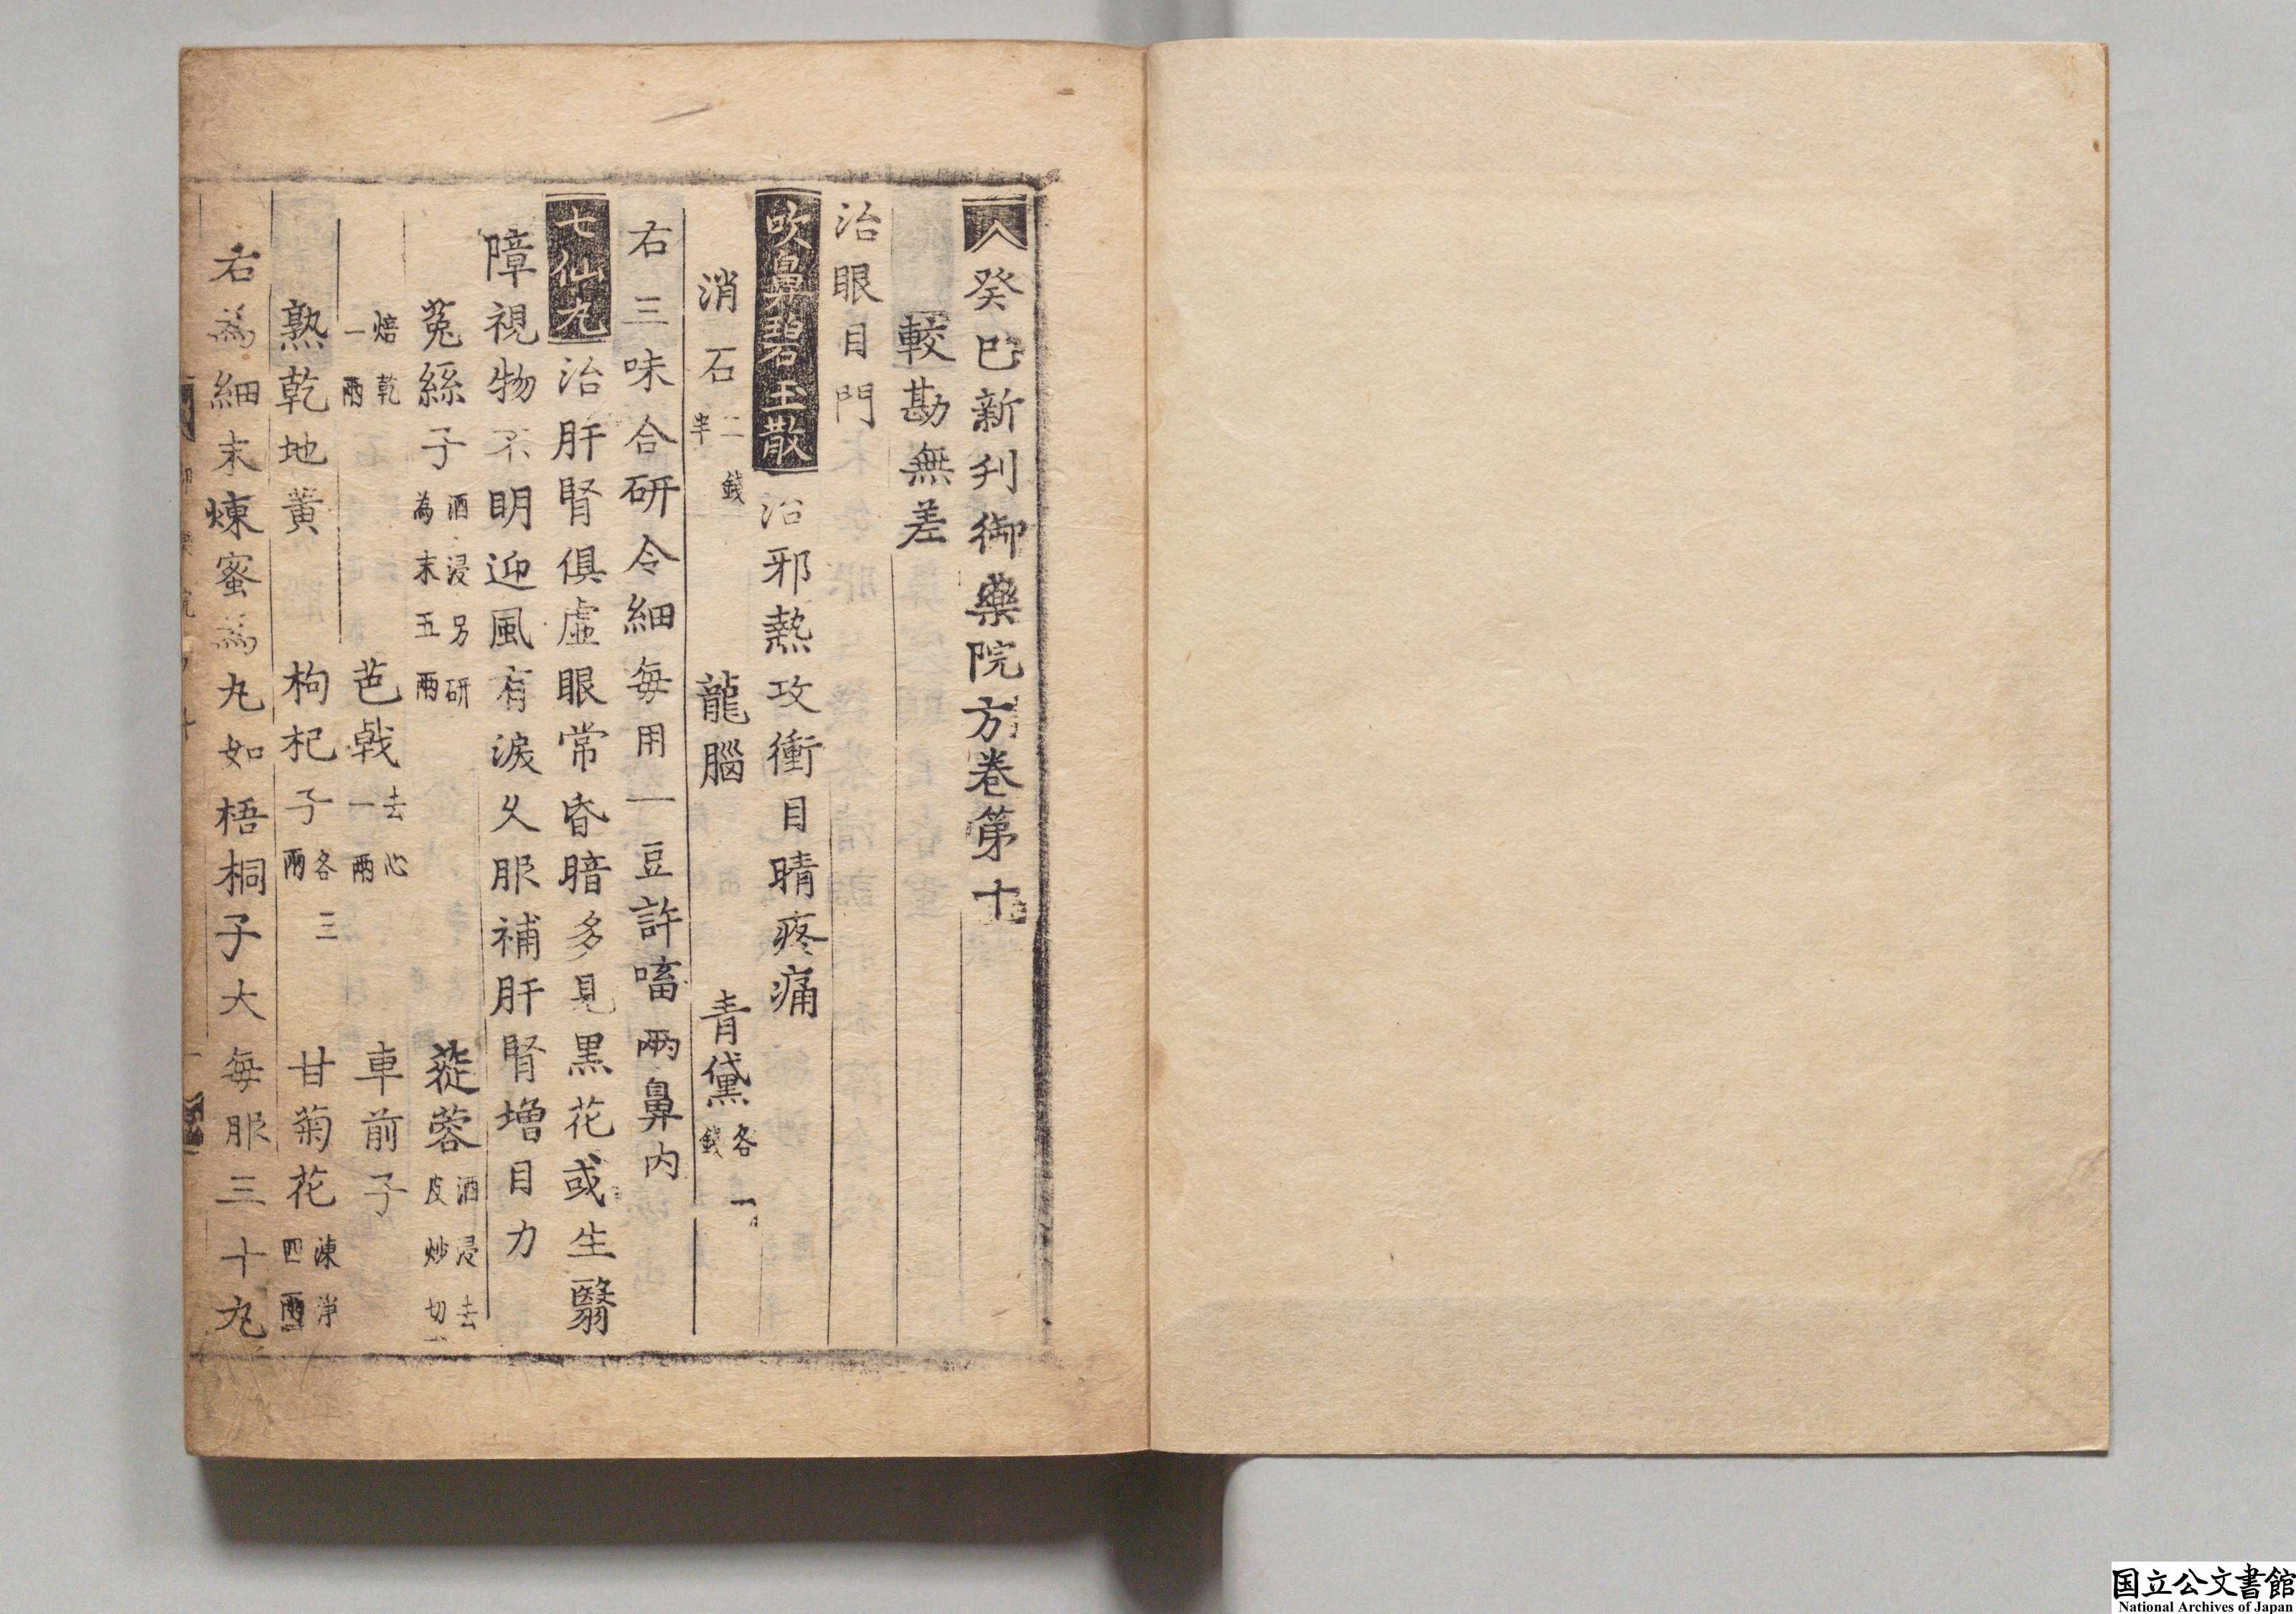 癸巳新刋御藥院方卷第十
較勘無差
治眼目門
吹鼻碧玉散 治邪熱攻衝目睛疼痛
消石二錢半 龍腦 青黛各一錢
右三味合研令細每用一豆許㗜兩鼻內
七仙丸 治肝腎俱虛眼常昏暗多見黑花或生翳
障視物不明迎風有淚久服補肝腎增目力
菟絲子酒浸另研為末五兩 蓯蓉酒浸去皮炒切
焙乾一兩 芭戟去心一兩 車前子
熟乾地黃 枸杞子各三兩 甘菊花湅淨四兩
右為細末煉蜜為丸如梧桐子大每服三十丸
国立公文書館
National Archives of Japan